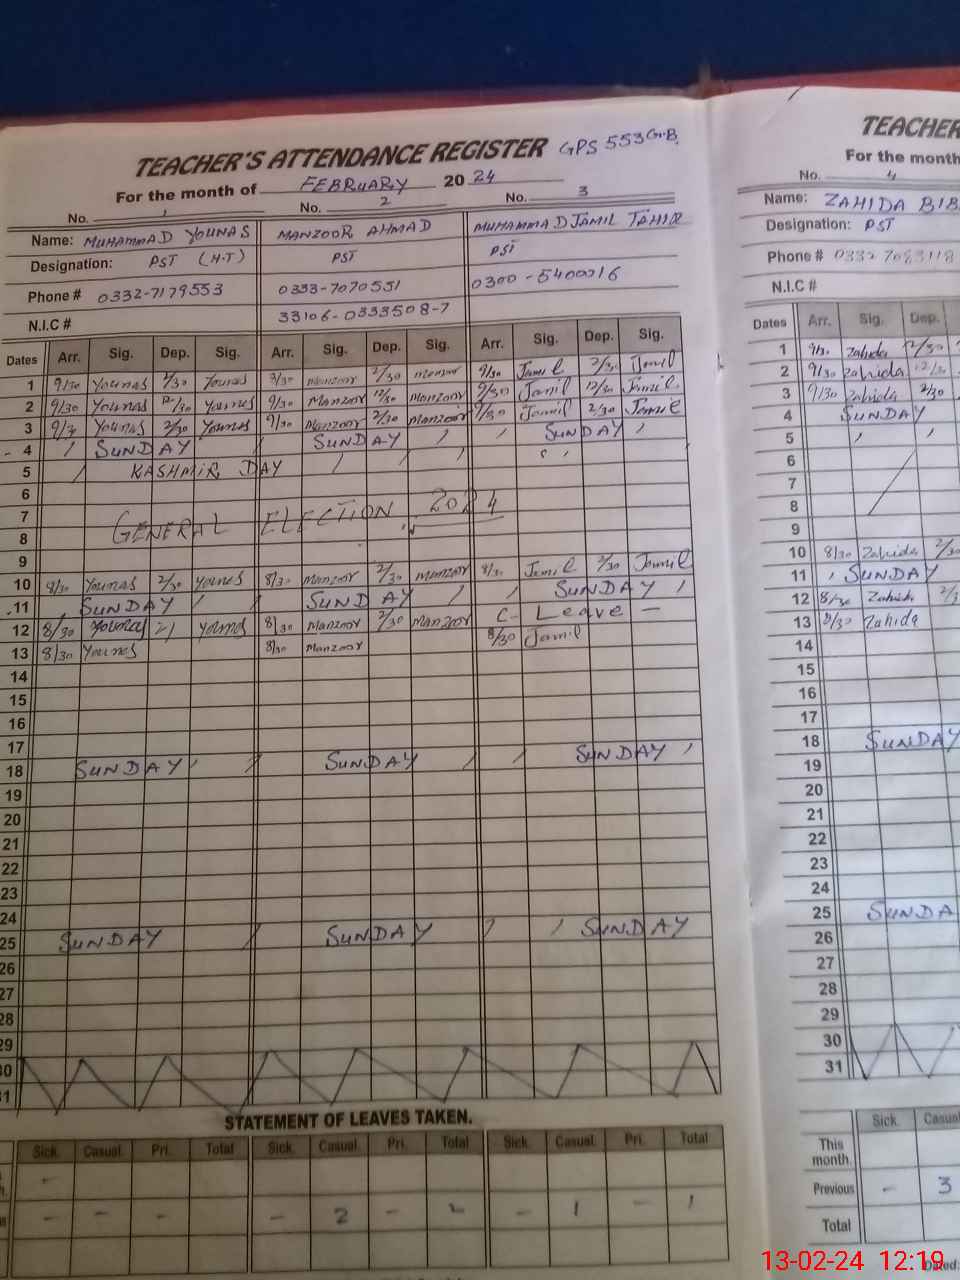 TEACHER'S ATTENDANCE REGISTER GPS 553 G.B.
For the month of FEBRUARY 2024
No. 1 No. 2 No. 3
Name: MUHAMMAD YOUNAS MANZOOR AHMAD MUHAMMAD JAMIL TAHIR
Designation: PST (H.T) PST PST
Phone # 0332-7179553 0333-7070551 0300-5400016
N.I.C # 33106-0333508-7
Dates Arr. Sig. Dep. Sig. Arr. Sig. Dep. Sig. Arr. Sig. Dep. Sig.
1 9/30 Younas 2/30 Younas Manzoor 2/30 Manzoor 9/30 Jamil 2/30 Jamil
2 9/30 Younas 12/30 Younas 9/30 Manzoor 12/30 Manzoor 9/30 Jamil 12/30 Jamil
3 Younas 2/30 Younas 9/30 Manzoor 2/30 Manzoor 9/30 Jamil 2/30 Jamil
4 SUNDAY SUNDAY SUNDAY
5 KASHMIR DAY
6
7 GENERAL ELECTION 2024
8
9
10 8/30 Younas 2/30 Younas 8/30 Manzoor 2/30 Manzoor 8/30 Jamil 2/30 Jamil
11 SUNDAY SUNDAY SUNDAY
12 8/30 Younas Younas 8/30 Manzoor 2/30 Manzoor C- Leave -
13 8/30 Younas 8/30 Manzoor 8/30 Jamil
14
15
16
17
18 SUNDAY SUNDAY SUNDAY
19
20
21
22
23
24
25 SUNDAY SUNDAY SUNDAY
26
27
28
29
30
31
STATEMENT OF LEAVES TAKEN.
Sick. Casual. Pri. Total Sick. Casual. Pri. Total Sick. Casual. Pri. Total
-
- - - - 2 - 2 - 1 - 1
TEACHER
For the month
No. 4
Name: ZAHIDA BIB
Designation: PST
Phone #
N.I.C #
Dates Arr. Sig. Dep.
1 Zahida 12/30
2 9/30 Zahida 12/30
3 9/30 Zahida 2/30
4 SUNDAY
5
6
7
8
9
10 8/30 Zahida 2/30
11 SUNDAY
12 8/30 Zahida
13 8/30 Zahida
14
15
16
17
18 SUNDAY
19
20
21
22
23
24
25 SUNDA
26
27
28
29
30
31
Sick. Casual
This month.
Previous - 3
Total
Dated:
13-02-24 12:19